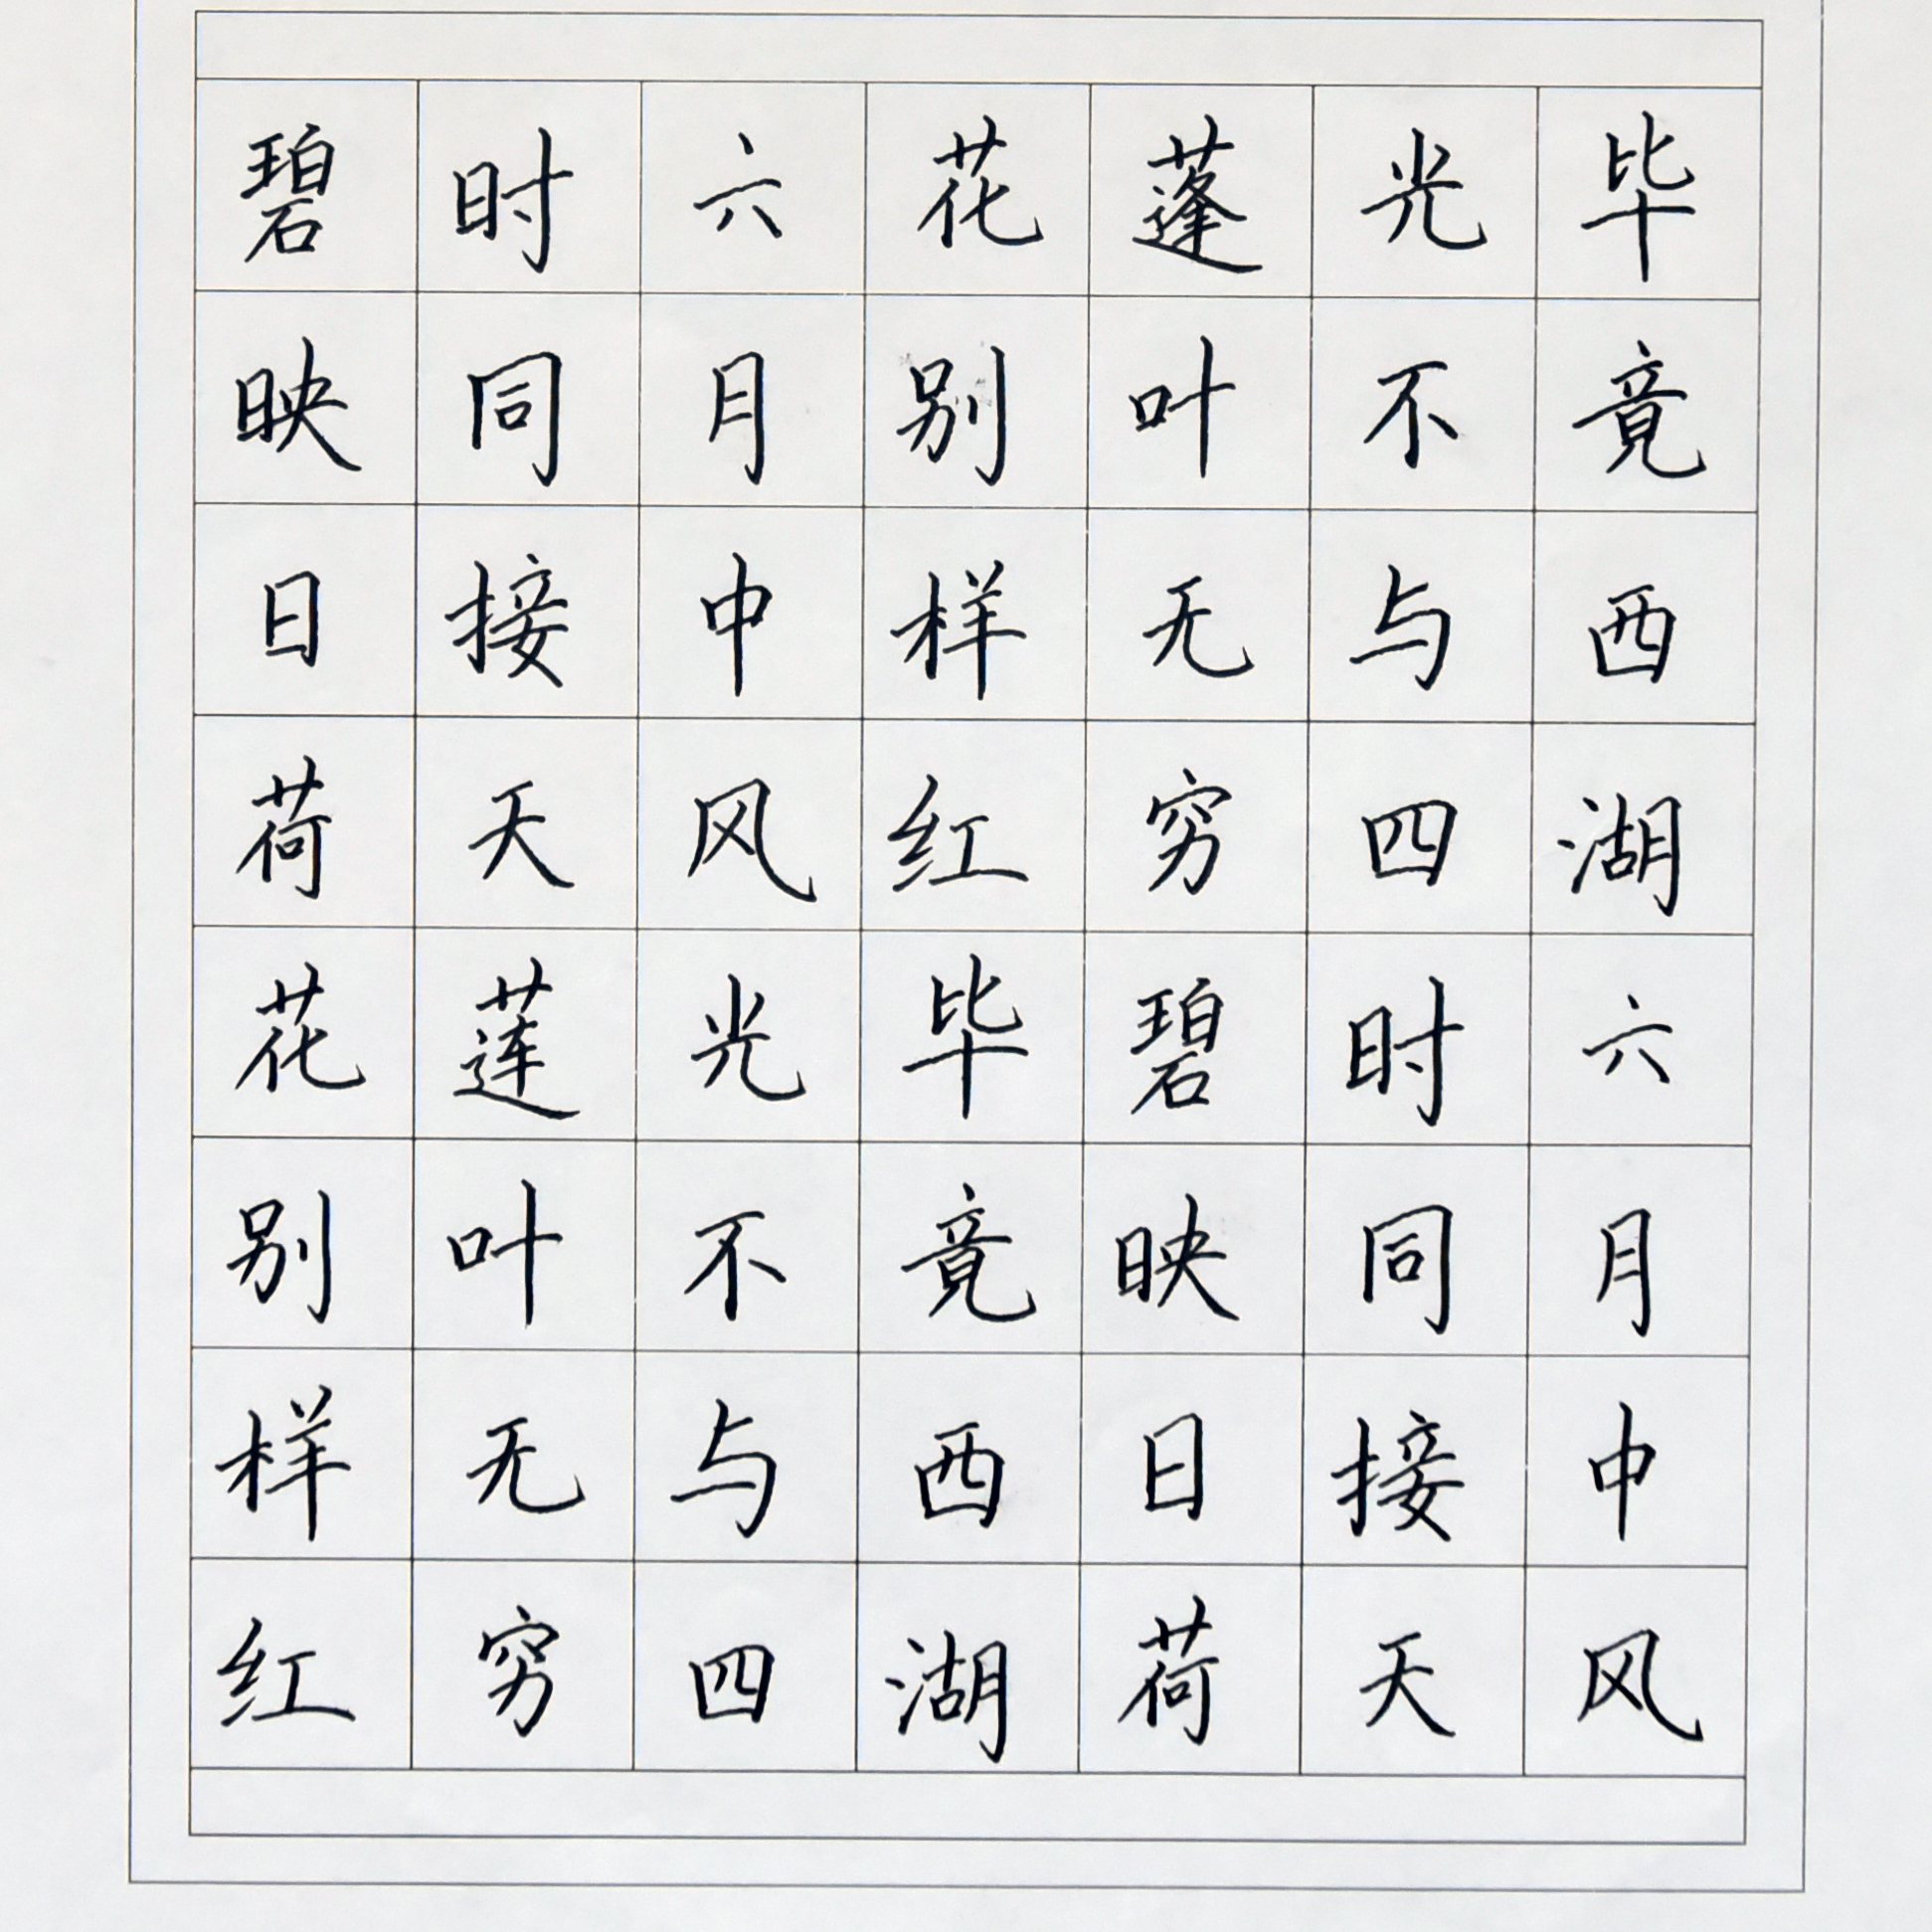 毕竟西湖六月中风
光不与四时同接天
蓬叶无穷碧映日荷
花别样红毕竟西湖
六月中风光不与四
时同接天莲叶无穷
碧映日荷花别样红